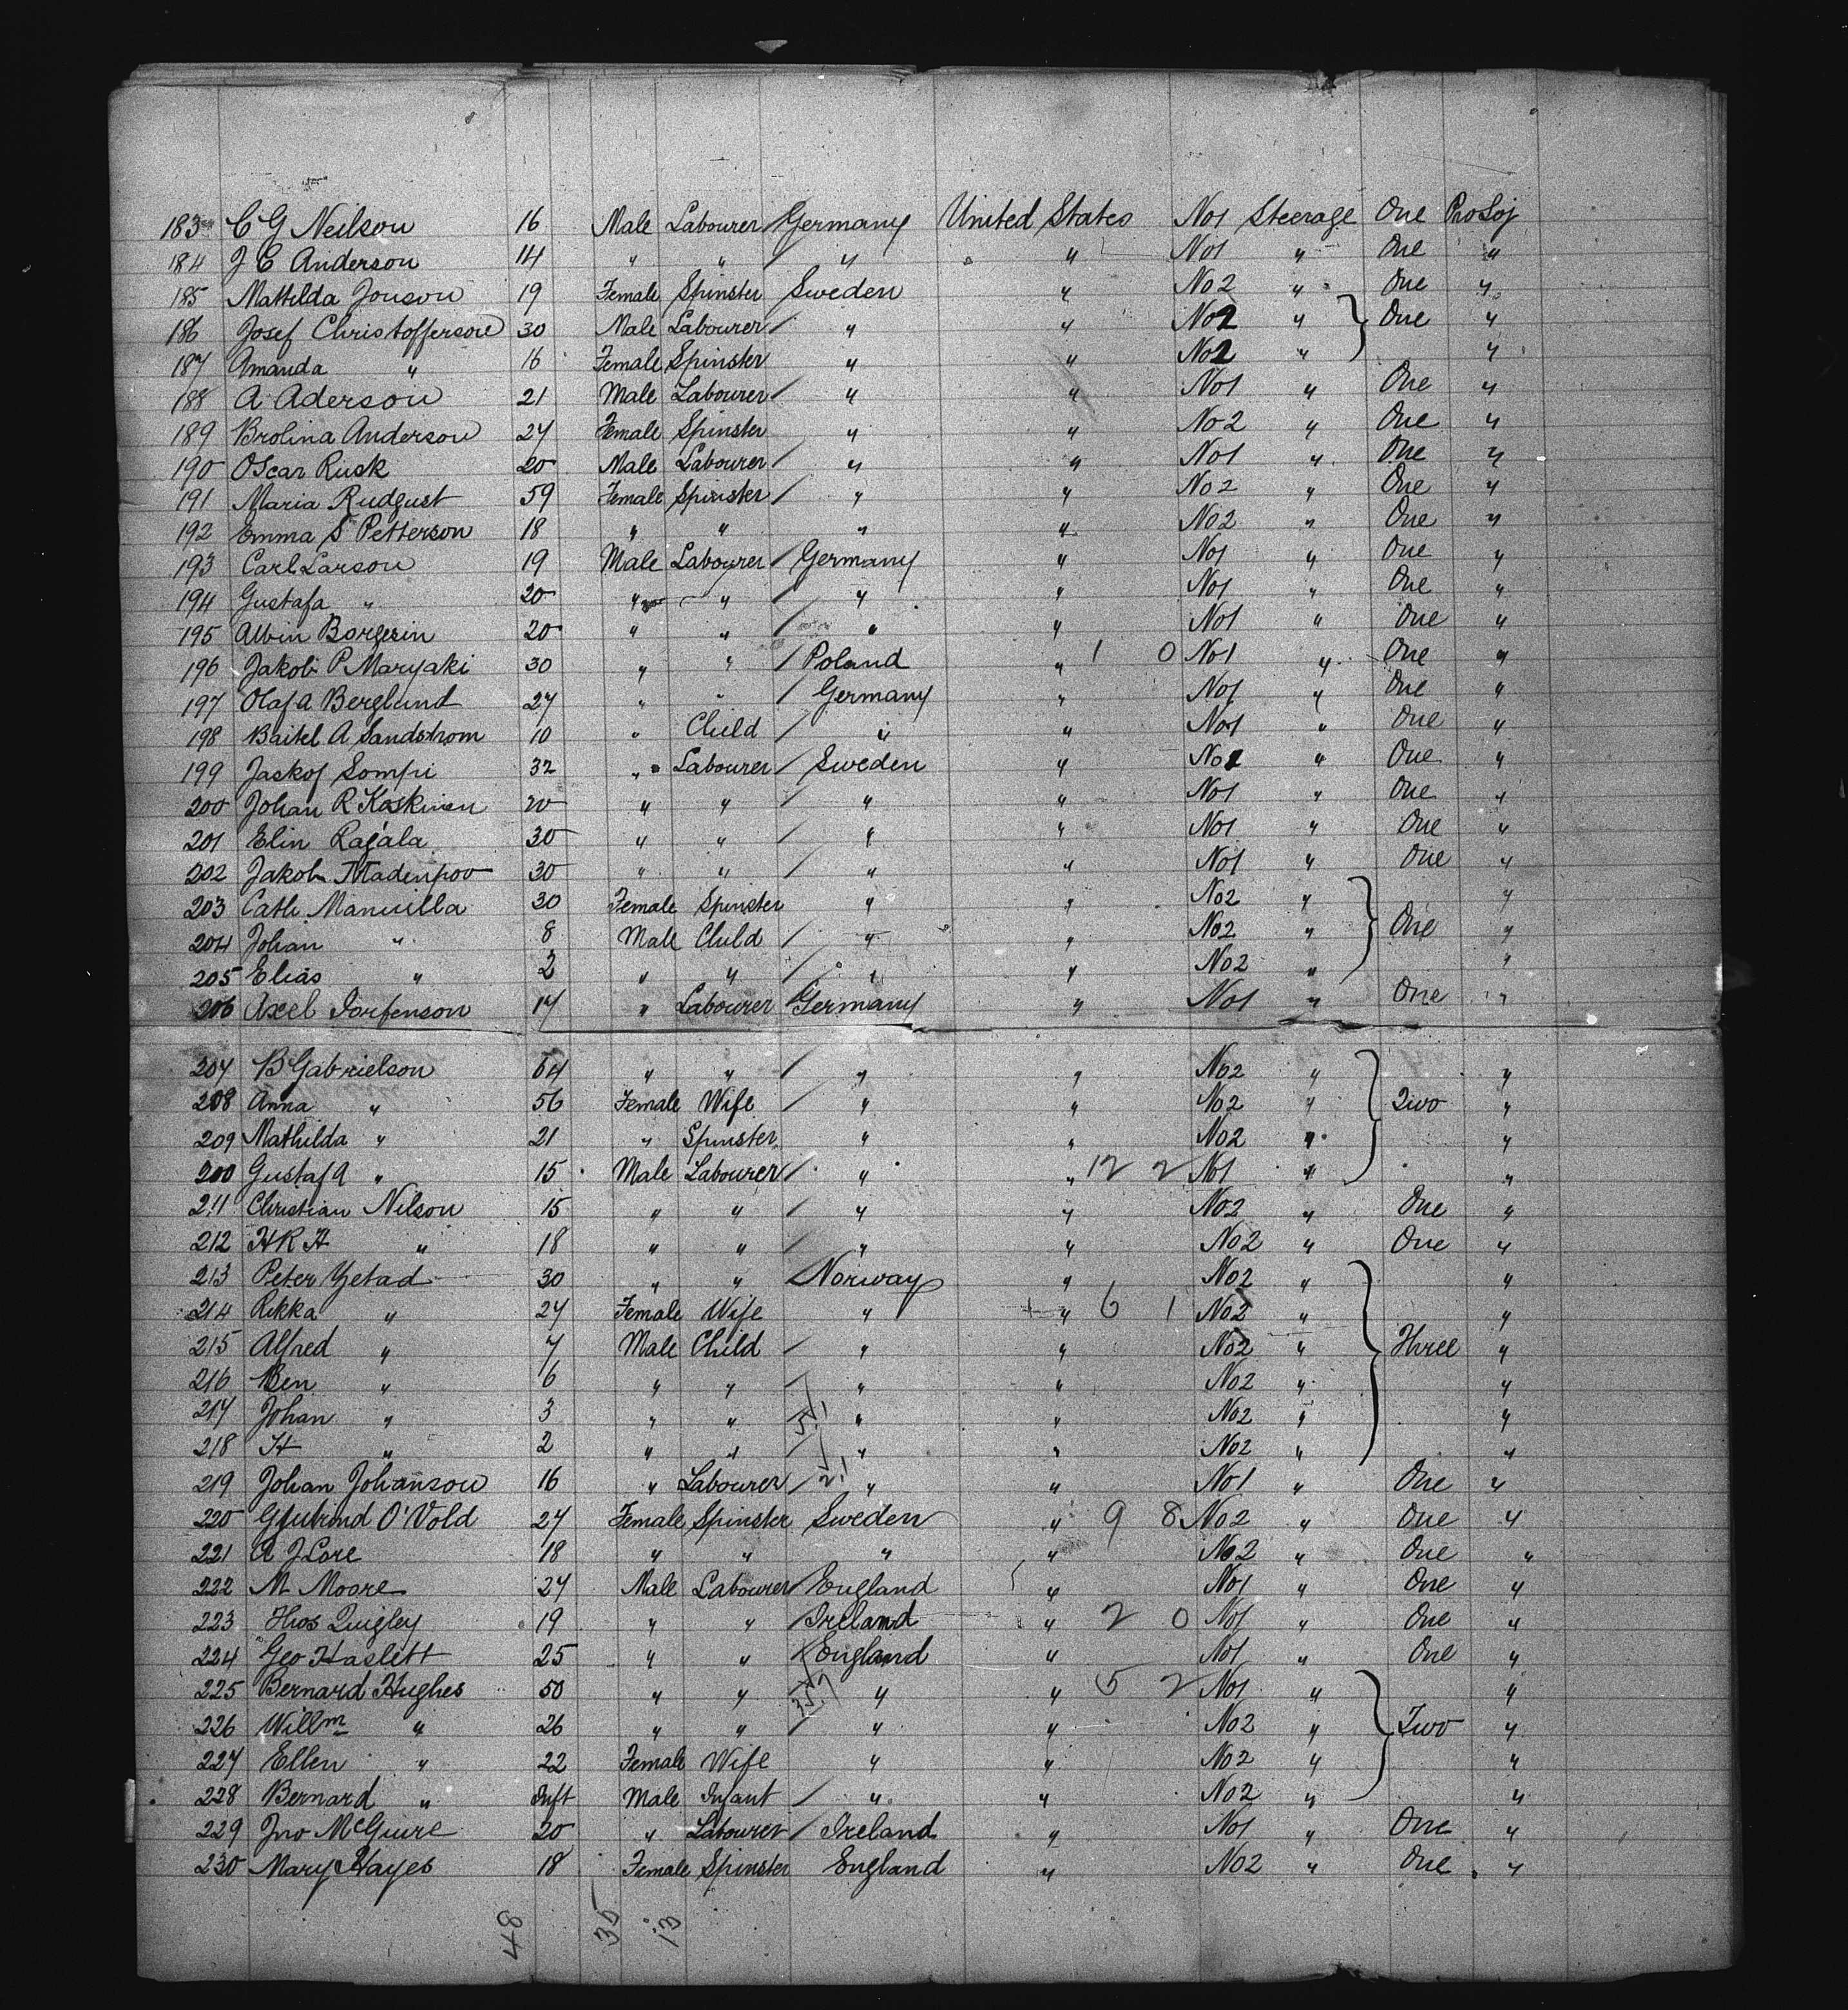 183 C G Neilson 16 Male Labourer Germany United States No1 Steerage One Pro Soj
184 J C Anderson 14 " " " " No1 " One "
185 Mathilda Jonson 19 Female Spinster Sweden " No2 " One "
186 Josef Christofferson 30 Male Labourer " " No2 " One "
187 Amanda " 16 Female Spinster " " No2 " "
188 A Aderson 21 Male Labourer " " No1 " One "
189 Brolina Anderson 24 Female Spinster " " No2 " One "
190 Oscar Rusk 20 Male Labourer " " No1 " One "
191 Maria Rudgust 59 Female Spinster " " No2 " One "
192 Emma S Petterson 18 " " " " No2 " One "
193 Carl Larson 19 Male Labourer Germany " No1 " One "
194 Gustafa " 20 " " " " No1 " One "
195 Albin Borgerin 20 " " " " No1 " One "
196 Jakob P Maryaki 30 " " Poland " 1 0 No1 " One "
197 Olaf A Berglund 27 " " Germany " No1 " One "
198 Baitel A Sandstrom 10 " Child " " No1 " One "
199 Jaskof Sompi 32 " Labourer Sweden " No1 " One "
200 Johan R Koskinen 20 " " " " No1 " One "
201 Elin Ragala 30 " " " " No1 " One "
202 Jakob Madenpov 30 " " " " No1 " One "
203 Cath Manuilla 30 Female Spinster " " No2 " "
204 Johan " 8 Male Child " " No2 " One "
205 Elias " 2 " " " " No2 " "
206 Axel Torfenson 17 " Labourer Germany " No1 " One "
207 B Gabrielson 64 " " " " No2 " "
208 Anna " 56 Female Wife " " No2 " Two "
209 Mathilda " 21 " Spinster " " No2 " "
200 Gustaf A " 15 Male Labourer " " 12 2 No1 " "
211 Christian Nilson 15 " " " " No2 " One "
212 H R H " 18 " " " " No2 " One "
213 Peter Yetad 30 " " Norway " No2 " "
214 Rikka " 27 Female Wife " " 6 1 No2 " "
215 Alfred " 7 Male Child " " No2 " Three "
216 Ben " 6 " " " " No2 " "
217 Johan " 3 " " " " No2 " "
218 H " 2 " " " " No2 " "
219 Johan Johanson 16 " Labourer " " No1 " One "
220 O'Vold 24 Female Spinster Sweden " 9 8 No2 " One "
221 A J Lore 18 " " " " No2 " One "
222 M Moore 24 Male Labourer England " No1 " One "
223 Thos Quigley 19 " " Ireland " 2 0 No1 " One "
224 Geo Haslett 25 " " England " No1 " One "
225 Bernard Hughes 50 " " " " 5 2 No1 " "
226 Willm " 26 " " " " No2 " Two "
227 Ellen " 22 Female Wife " " No2 " "
228 Bernard " Inft Male Infant " " No2 " "
229 Jno McGuire 20 " Labourer Ireland " No1 " One "
230 Mary Hayes 18 Female Spinster England " No2 " One "
48 35 13